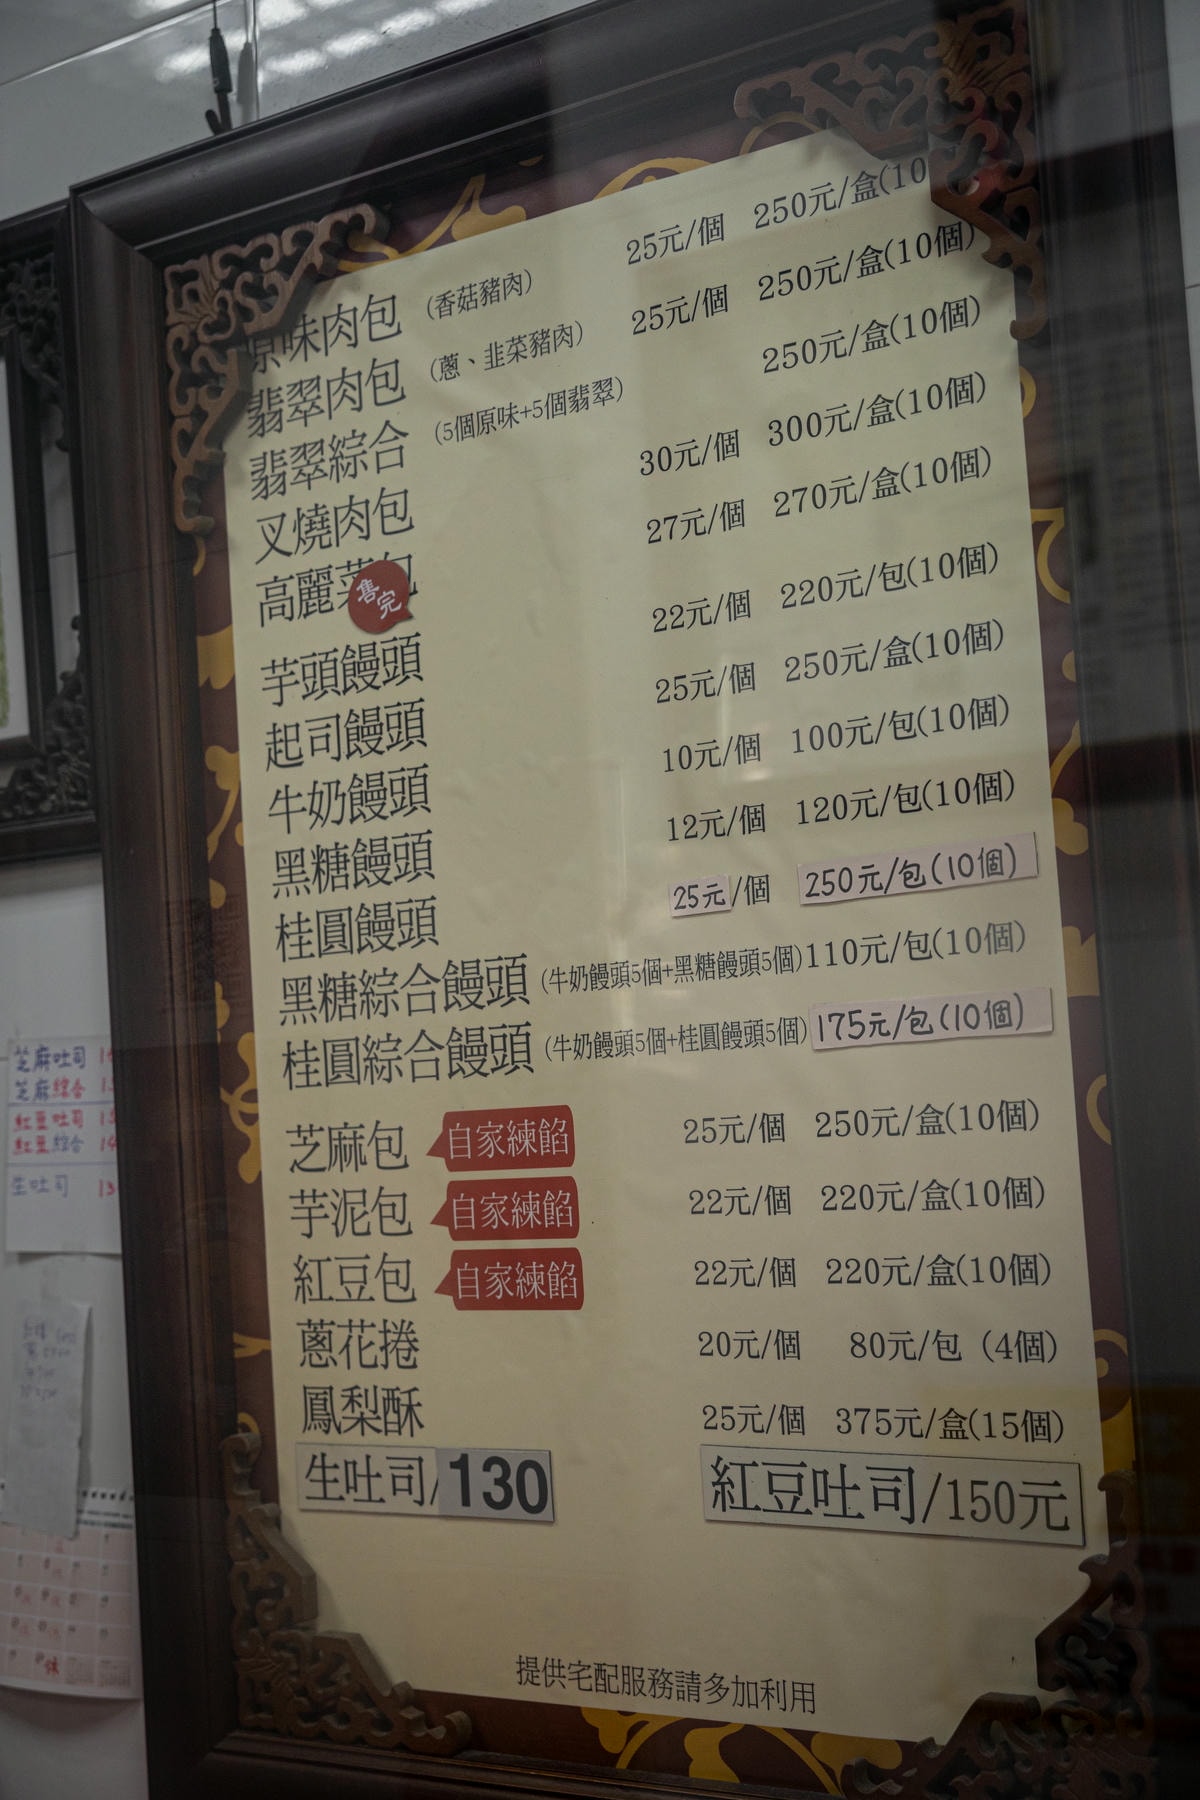 原味肉包 (香菇豬肉) 25元/個 250元/盒(10
翡翠肉包 (蔥、韭菜豬肉) 25元/個 250元/盒(10個)
翡翠綜合 (5個原味+5個翡翠) 250元/盒(10個)
叉燒肉包 30元/個 300元/盒(10個)
高麗菜包 售完 27元/個 270元/盒(10個)
芋頭饅頭 22元/個 220元/包(10個)
起司饅頭 25元/個 250元/盒(10個)
牛奶饅頭 10元/個 100元/包(10個)
黑糖饅頭 12元/個 120元/包(10個)
桂圓饅頭 25元/個 250元/包(10個)
黑糖綜合饅頭 (牛奶饅頭5個+黑糖饅頭5個)110元/包(10個)
桂圓綜合饅頭 (牛奶饅頭5個+桂圓饅頭5個)175元/包(10個)
芝麻包 自家練餡 25元/個 250元/盒(10個)
芋泥包 自家練餡 22元/個 220元/盒(10個)
紅豆包 自家練餡 22元/個 220元/盒(10個)
蔥花捲 20元/個 80元/包 (4個)
鳳梨酥 25元/個 375元/盒(15個)
生吐司/130 紅豆吐司/150元
提供宅配服務請多加利用
芝麻吐司
芝麻綜合
紅豆吐司
紅豆綜合
生吐司
休